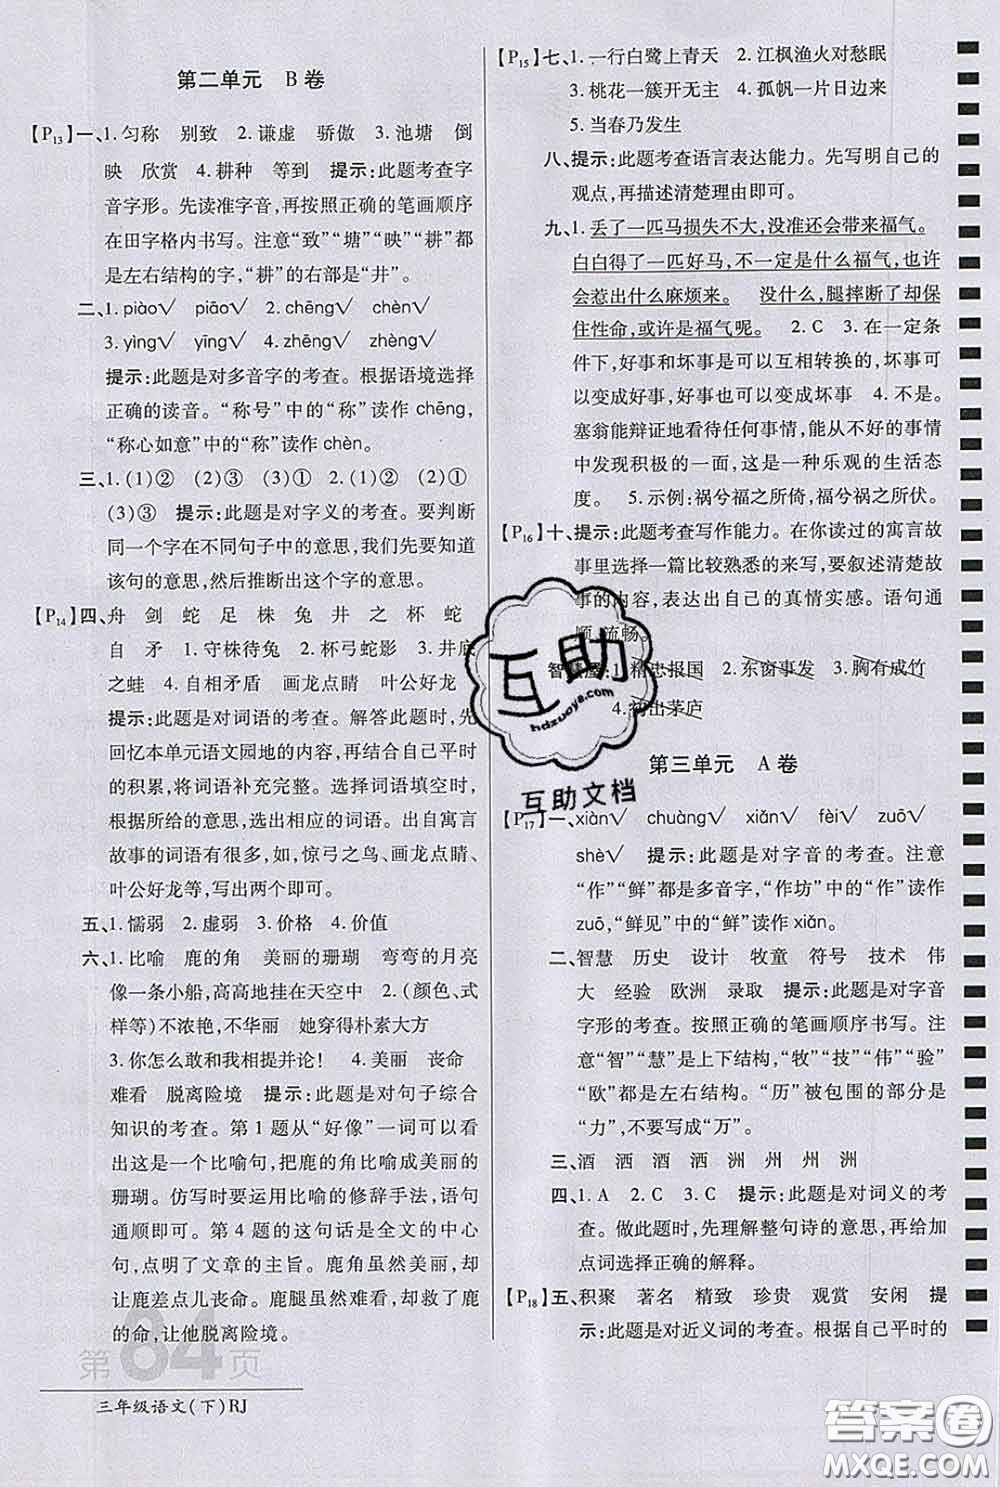 第二单元 B卷
【P13】一、1.匀称 别致 2.谦虚 骄傲 3.池塘 倒
映 欣赏 4.耕种 等到 提示:此题考查字
音字形。先读准字音,再按照正确的笔画顺序
在田字格内书写。注意“致”“塘”“映”“耕”都
是左右结构的字,“耕”的右部是“井”。
二、1.piào√ piāo√ 2.chēng√ chèn√
3.yìng√ yīng√ 4.zhēng√ zhèng√
提示:此题是对多音字的考查。根据语境选择
正确的读音。“称号”中的“称”读作 chēng,
“称心如意”中的“称”读作 chèn。
三、1.(1)② (2)③ (3)① 2.(1)② (2)①
(3)③ 提示:此题是对字义的考查。要判断
同一个字在不同句子中的意思,我们先要知道
该句的意思,然后推断出这个字的意思。
【P14】四、舟 剑 蛇 足 株 兔 井 之 杯 蛇
自 矛 1.守株待兔 2.杯弓蛇影 3.井底
之蛙 4.自相矛盾 画龙点睛 叶公好龙
提示:此题是对词语的考查。解答此题时,先
回忆本单元语文园地的内容,再结合自己平时
的积累,将词语补充完整。选择词语时,要
根据所给的意思,选出相应的词语。出自寓言
故事的词语有很多,如,惊弓之鸟、画龙点睛、
叶公好龙等,写出两个即可。
五、1.懦弱 2.虚弱 3.价格 4.价值
六、1.比喻 鹿的角 美丽的珊瑚 弯弯的月亮
像一条小船,高高地挂在天空中 2.(颜色、式
样等)不浓艳,不华丽 她穿得朴素大方
3.你怎么敢和我相提并论! 4.美丽 丧命
难看 脱离险境 提示:此题是对句子综合
知识的考查。第1题从“好像”一词可以看
出这是一个比喻句,把鹿的角比喻成美丽的
珊瑚。仿写时要运用比喻的修辞手法,语句
通顺即可。第4题的这句话是全文的中心
句,点明了文章的主旨。鹿角虽然美丽,却
让鹿差点儿丧命。鹿腿虽然难看,却救了鹿
的命,让他脱离险境。
第84页
三年级语文(下)RJ
【P15】七、1.一行白鹭上青天 2.江枫渔火对愁眠
3.桃花一簇开无主 4.孤帆一片日边来
5.当春乃发生
八、提示:此题考查语言表达能力。先写明自己的
观点,再描述清楚理由即可。
九、1.丢了一匹马损失不大,没准还会带来福气。
白白得了一匹好马,不一定是什么福气,也许
会惹出什么麻烦来。 没什么,腿摔断了却保
住性命,或许是福气呢。 2.C 3.在一定条
件下,好事和坏事是可以互相转换的,坏事可
以变成好事,好事也可以变成坏事 4.不是。
塞翁能辩证地看待任何事情,能从不好的事情
中发现积极的一面,这是一种乐观的生活态
度。 5.示例:祸兮福之所倚,福兮祸之所伏。
【P16】十、提示:此题考查写作能力。在你读过的寓言故
事里选择一篇比较熟悉的来写,要叙述清楚故
事的内容,表达出自己的真情实感。语句通
顺、流畅。
智慧屋:1.精忠报国 2.东窗事发 3.胸有成竹
4.初出茅庐
第三单元 A卷
【P17】一、xiàn√ chuàng√ xiǎn√ fèi√ zuō√
shè√ 提示:此题是对字音的考查。注意
“作”“鲜”都是多音字,“作坊”中的“作”读作
zuō,“鲜见”中的“鲜”读作 xiǎn。
二、智慧 历史 设计 牧童 符号 技术 伟
大 经验 欧洲 录取 提示:此题是对字音
字形的考查。按照正确的笔画顺序书写。注
意“智”“慧”是上下结构,“牧”“技”“伟”“验”
“欧”都是左右结构。“历”被包围的部分是
“力”,不要写成“万”。
三、酒 洒 洒 酒 洲 州 州 洲
四、1.A 2.C 3.C 提示:此题是对词义的考
查。做此题时,先理解整句诗的意思,再给加
点词选择正确的解释。
【P18】五、积聚 著名 精致 珍贵 观赏 安闲 提
示:此题是对近义词的考查。根据自己平时的
互助
hdzuoye.com
互助文档
答案卷
MXQE.COM